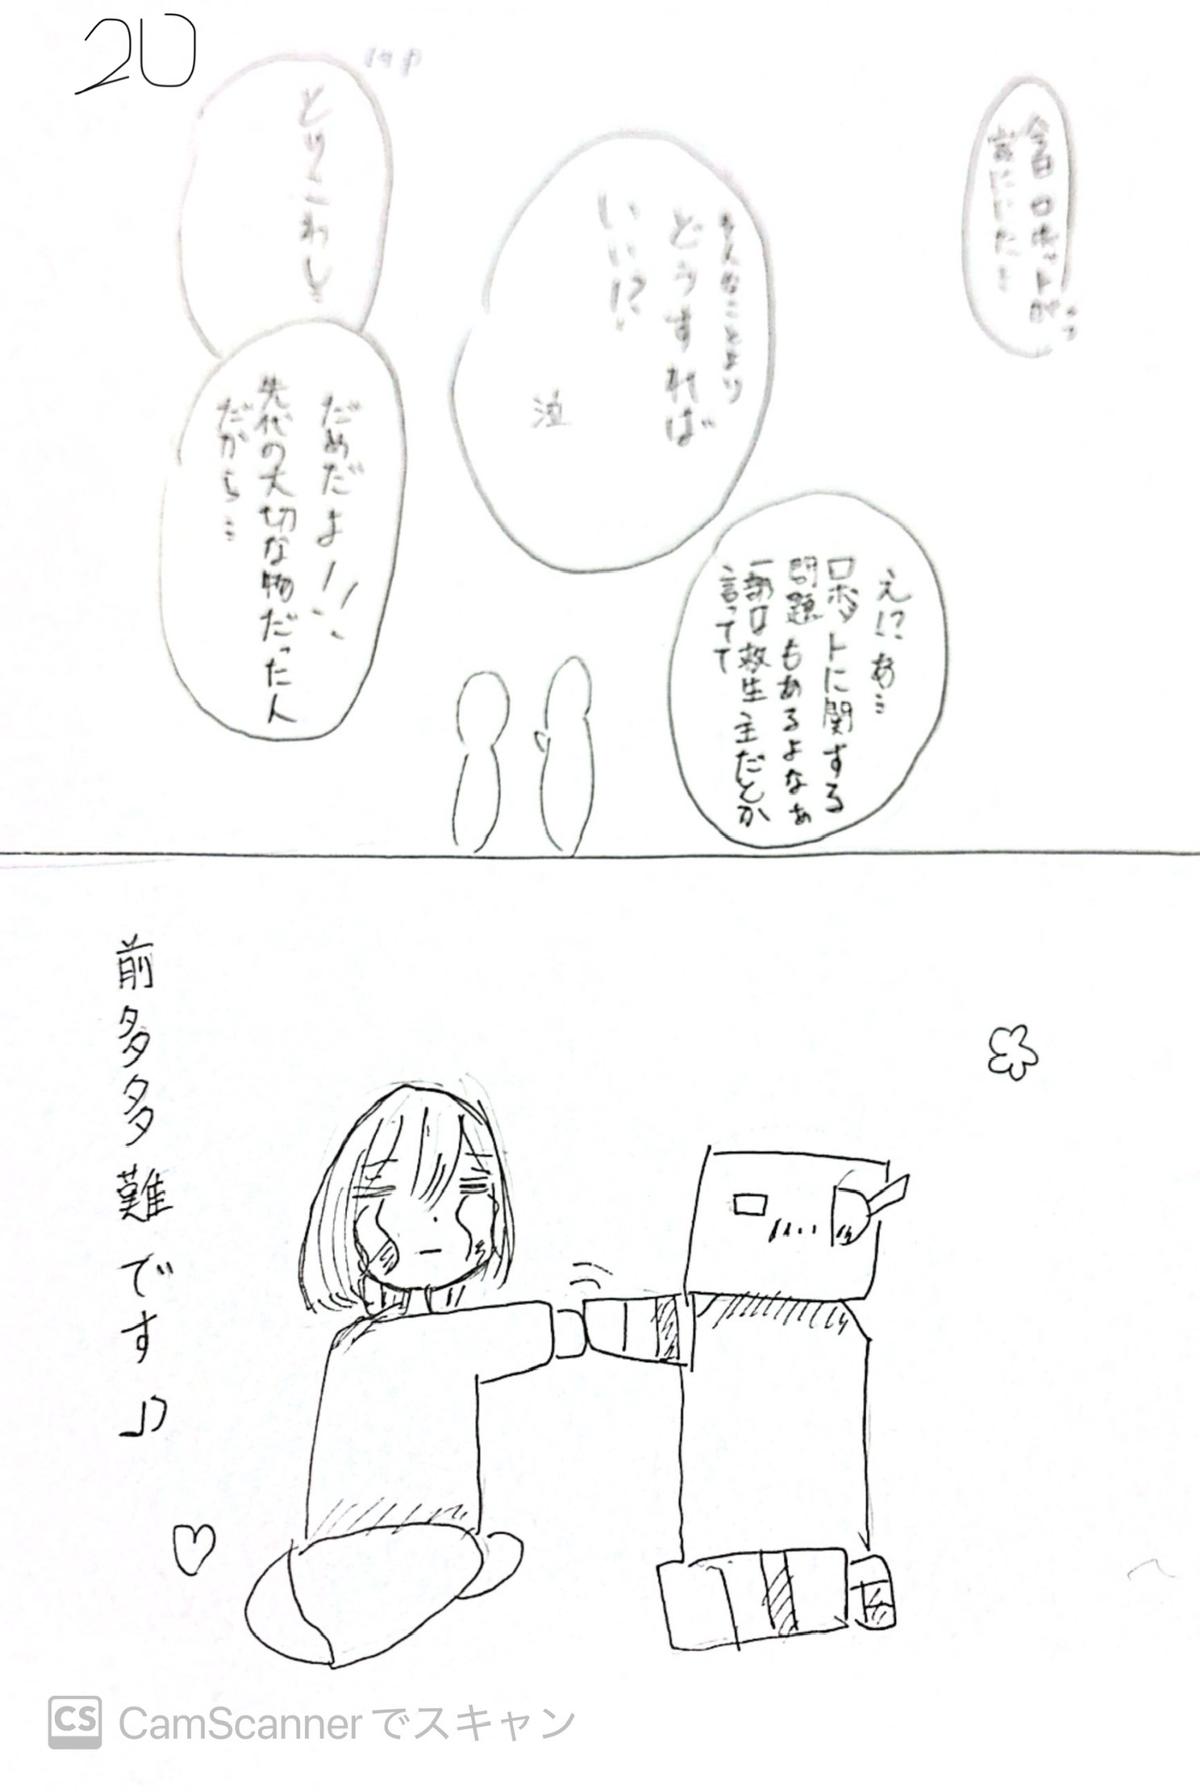 20
今日ロボットが
家にいたよ
そんなことより
どうすれば
いい!?
泣
え!?あ…
ロボットに関する
問題もあるよなぁ
一部は救生主だとか
言ってて
とりこわし
だめだよ!!
先代の大切な物だった人
だから…
前多多難です♪
CS CamScannerでスキャン